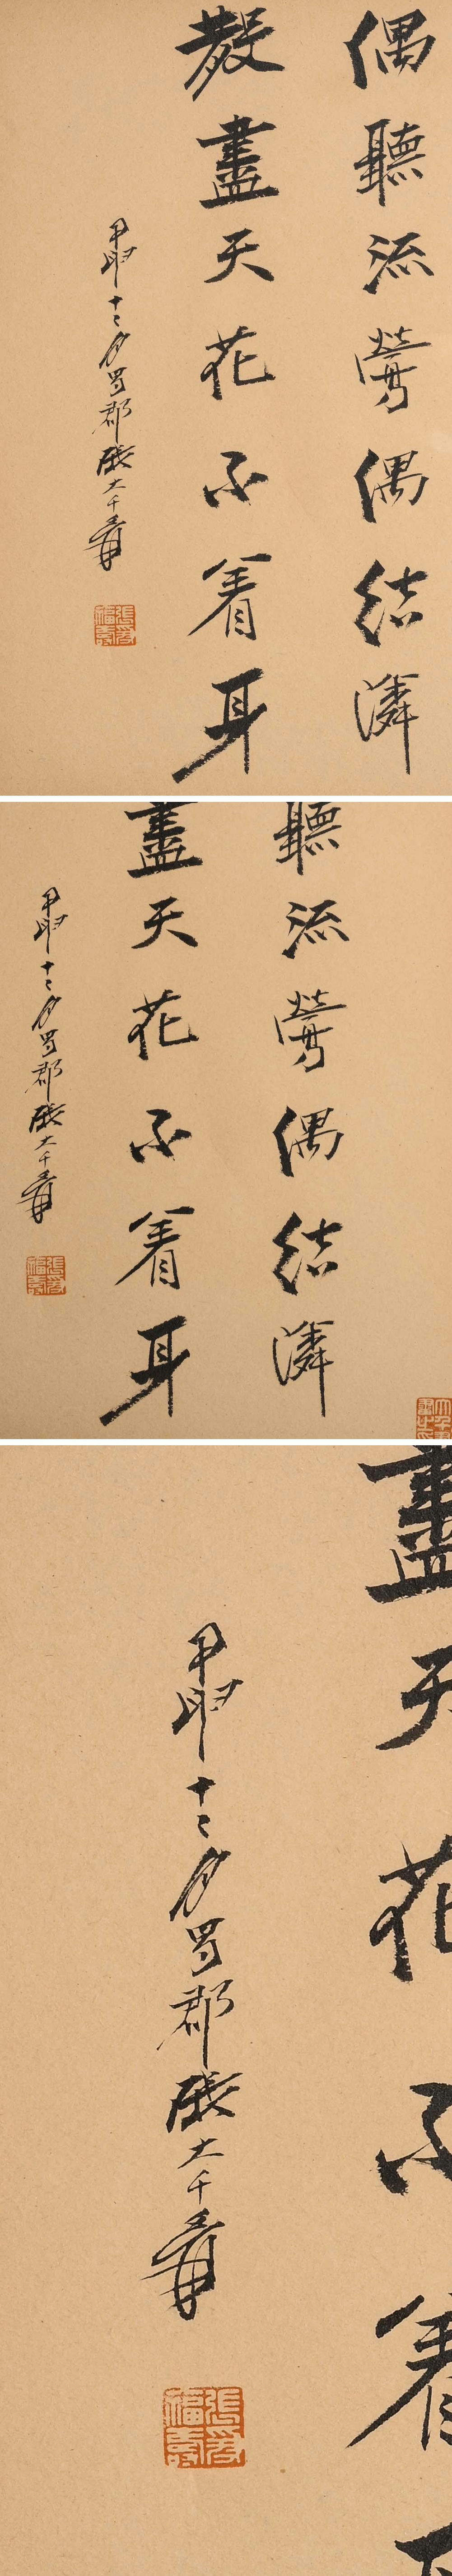 偶聽流鶯偶結隣
散盡天花不着身
甲申十二月蜀郡張大千爰
張爰福壽
聽流鶯偶結隣
盡天花不着身
甲申十二月蜀郡張大千爰
張爰福壽
盡天花不着
甲申十二月蜀郡張大千爰
張爰福壽